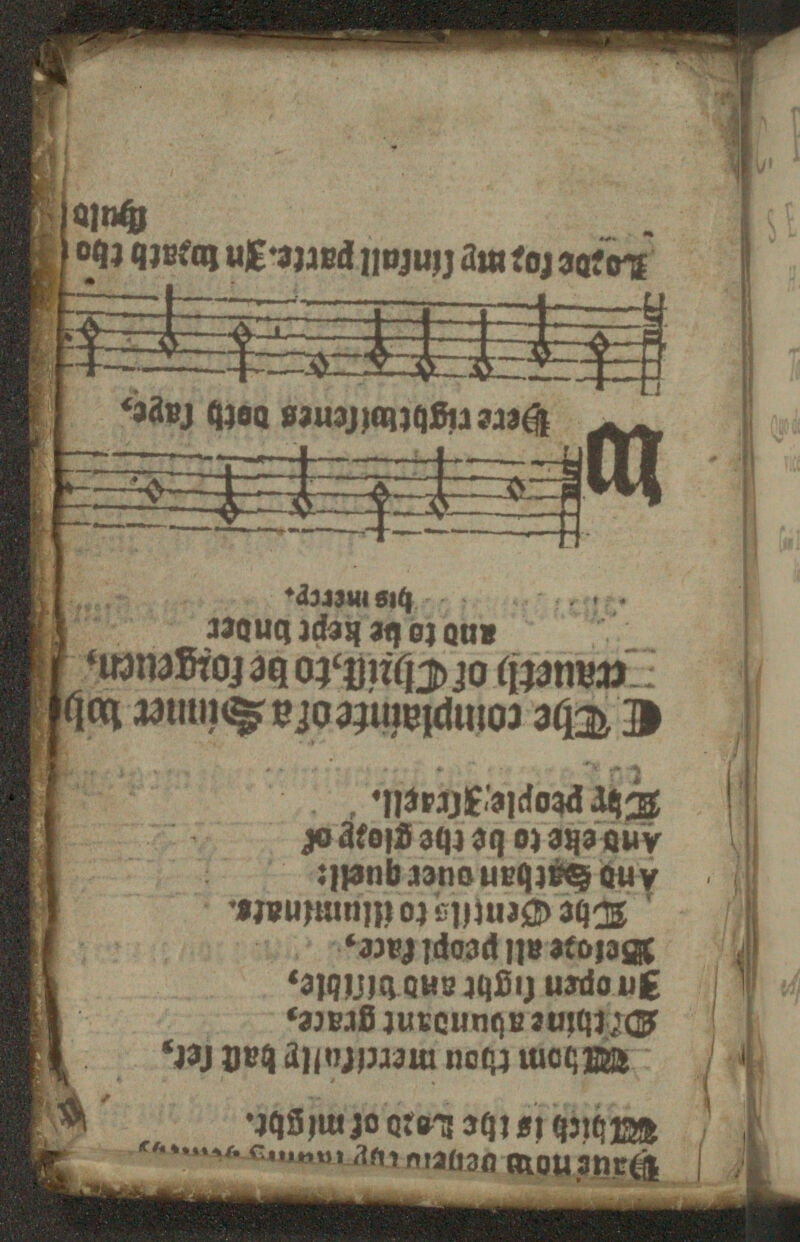 Haue now beheld thy sauing health,
Which is the Lord of might.
Whom thou mercifully hast set,
Of thine abundant grace,
In open sight and visible,
Before all peopls face,
The Gentils to illuminate.
And Sathan ouer quell:
And eke to be the glory of
Thy people Israell.
The complainte of a Sinner who
craueth of Christ, to be forgiuen,
and to be kept vnder
his mercy.
WHere righteousnes doth say,
Lorde for my sinfull parte. In wrath thou
shuld